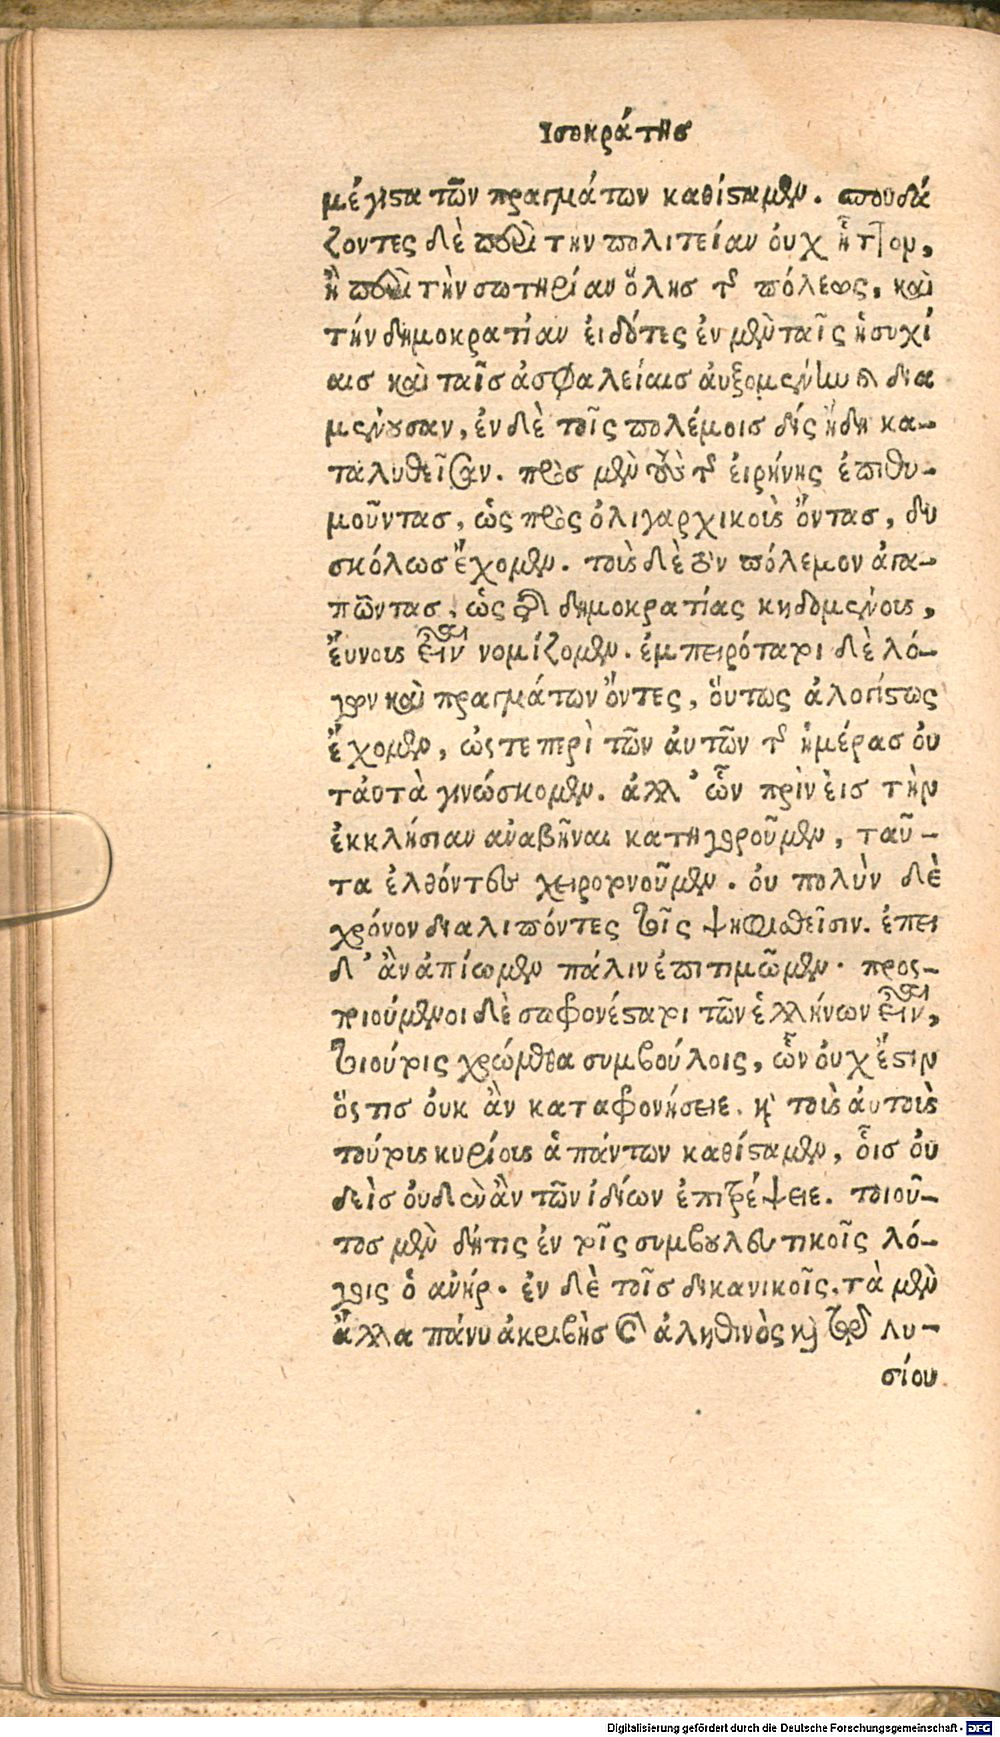 Ισοκράτης
μέγιστα τῶν πραγμάτων καθίσταμεν. σπουδά
ζοντες δὲ περὶ την πολιτείαν ὀυχ ἧττον,
ἢ περὶ τὴν σωτηρίαν ὅλης τῆς πόλεως, καὶ
τήν δημοκρατίαν ἐιδότες ἐν μὲν ταῖς ἡσυχί
αις καὶ ταῖς ἀσφαλείαις ἀυξομένην καὶ δια
μένουσαν, ἐν δὲ τοῖς πολέμοις δίς ἤδη κα-
ταλυθεῖσαν. πρὸς μὲν τοὺς τῆς ἐιρήνης ἐπιθυ-
μοῦντας, ὡς πρὸς ὀλιγαρχικοὺς ὄντας, δυ
σκόλως ἔχομεν. τοὺς δὲ τὸν πόλεμον ἀγα-
πῶντας, ὡς τῆς δημοκρατίας κηδομένους,
ἔυνους εἶναι νομίζομεν. ἐμπειρότατοι δὲ λό-
γων καὶ πραγμάτων ὄντες, ὅυτως ἀλογίστως
ἔχομεν, ὥστε περὶ τῶν ἀυτῶν τῆς ἡμέρας ὀυ
ταυτὰ γινώσκομεν. ἀλλ' ὧν πρὶν ἐις τὴν
ἐκκλήσιαν αναβῆναι κατηγοροῦμεν, ταῦ-
τα ἐλθόντες χειροτονοῦμεν. ὀυ πολὺν δὲ
χρόνον διαλιπόντες τοῖς ψηφισθεῖσιν. ἐπει
δ' ἂν ἀπίωμεν πάλιν ἐπιτιμῶμεν. προς-
ποιούμενοι δὲ σωφρονέστατοι τῶν ἑλλήνων εἶναι,
τοιούτοις χρώμεθα συμβούλοις, ὧν ὀυχ ἔστιν
ὅστις ὀυκ ἂν καταφρονήσειε. καὶ τοὺς ἀυτοὺς
τούτους κυρίους ἁπάντων καθίσταμεν, οἷς ὀυ
δεὶς ὀυδὲν ἂν τῶν ἰδίων ἐπιτρέψειε. τοιοῦ-
τος μὲν δή τις ἐν τοῖς συμβουλευτικοῖς λό-
γοις ὁ ανήρ. ἐν δὲ τοῖς δικανικοῖς. τὰ μὲν
ἄλλα πάνυ ακριβὴς καὶ ἀληθινὸς καὶ τῷ Λυ-
σίου
Digitalisierung gefördert durch die Deutsche Forschungsgemeinschaft - DFG